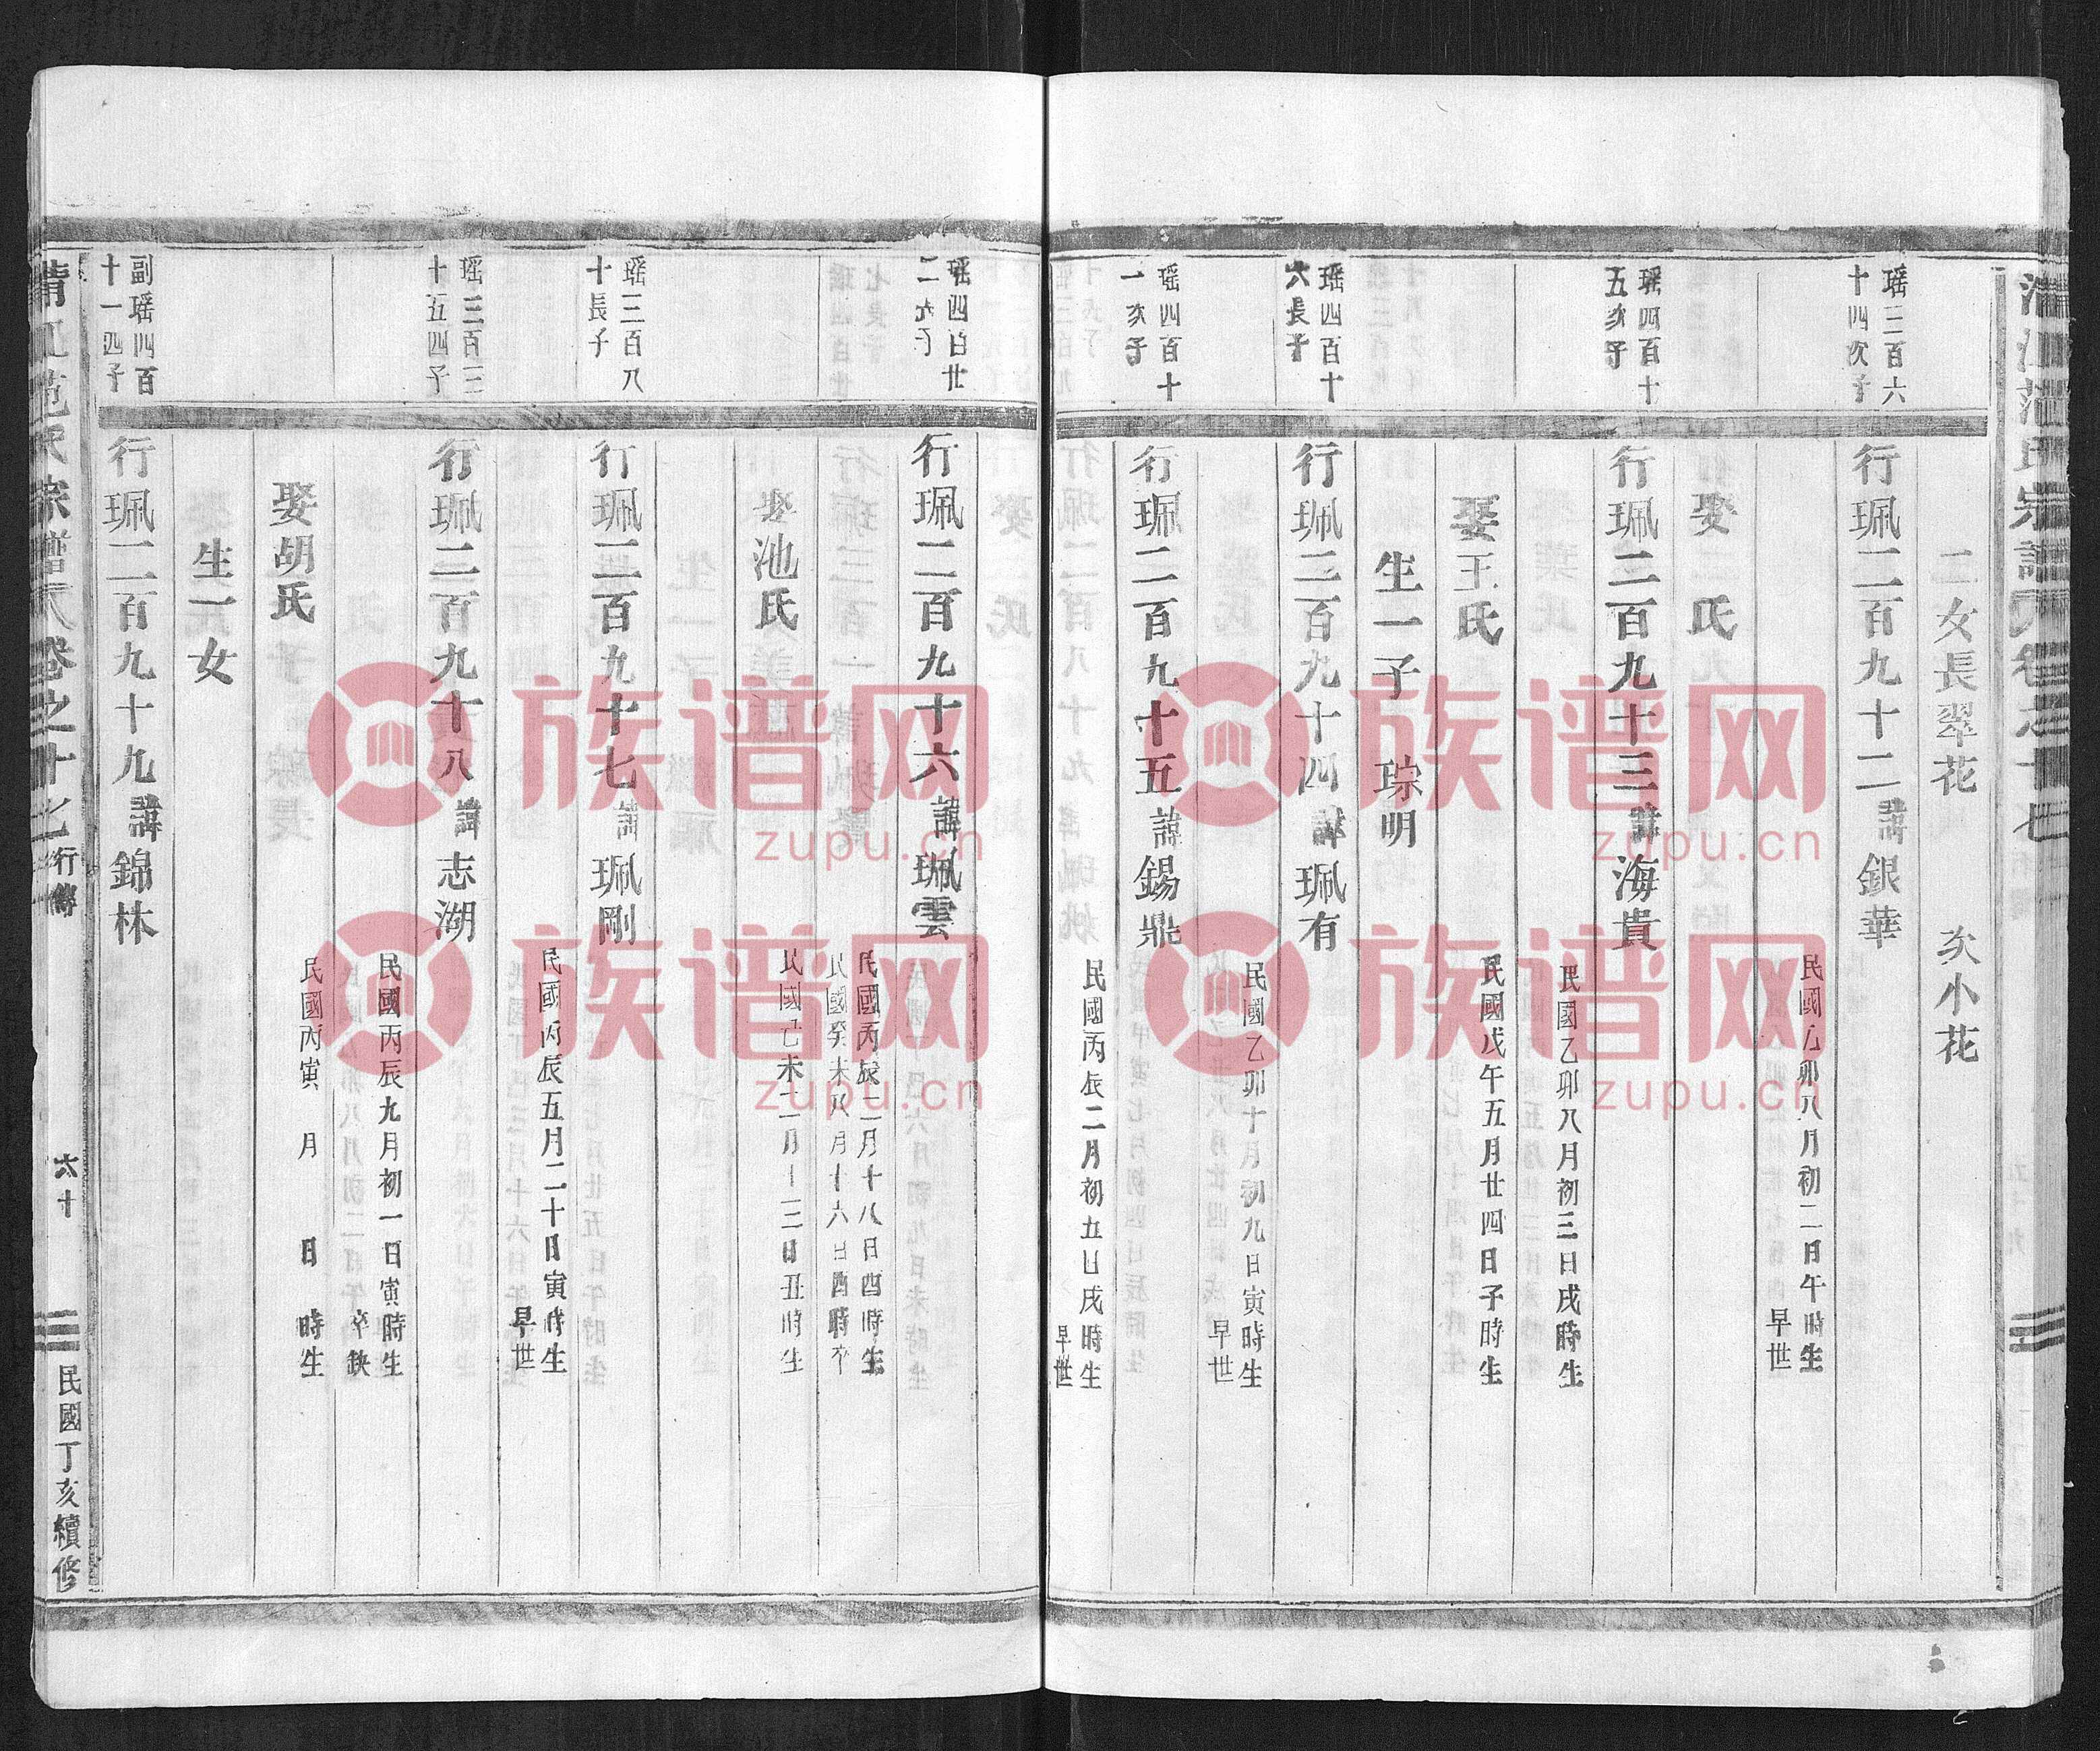 二女長翠花　次小花
瑶二百六
十四次子
行珮二百九十二諱銀華
民國乙卯八月初二日午時生
早世
娶　氏
瑶四百十
五次子
行珮二百九十三諱海貴
民國乙卯八月初三日戌時生
娶王氏
民國戊午五月廿四日子時生
生一子　琮明
瑶四百十
六長子
行珮二百九十四諱珮有
民國乙卯十月初九日寅時生
早世
瑶四百十
一次子
行珮二百九十五諱錫鼎
民國丙辰二月初五日戌時生
早世
瑶四百廿
二六子
行珮二百九十六諱珮雲
民國丙辰二月十八日酉時生
民國癸未八月十六日酉時卒
娶池氏
民國己未二月十二日丑時生
瑶三百八
十長子
行珮二百九十七諱珮剛
民國丙辰五月二十日寅時生
早世
瑶三百三
十五四子
行珮二百九十八諱志湖
民國丙辰九月初一日寅時生
卒缺
娶胡氏
民國丙寅　月　日　時生
生一女
副瑶四百
十一四子
行珮二百九十九諱錦林
范氏宗譜　卷之十七　行傳
六十
民國丁亥續修
族谱网
zupu.cn
族谱网
zupu.cn
族谱网
zupu.cn
族谱网
zupu.cn